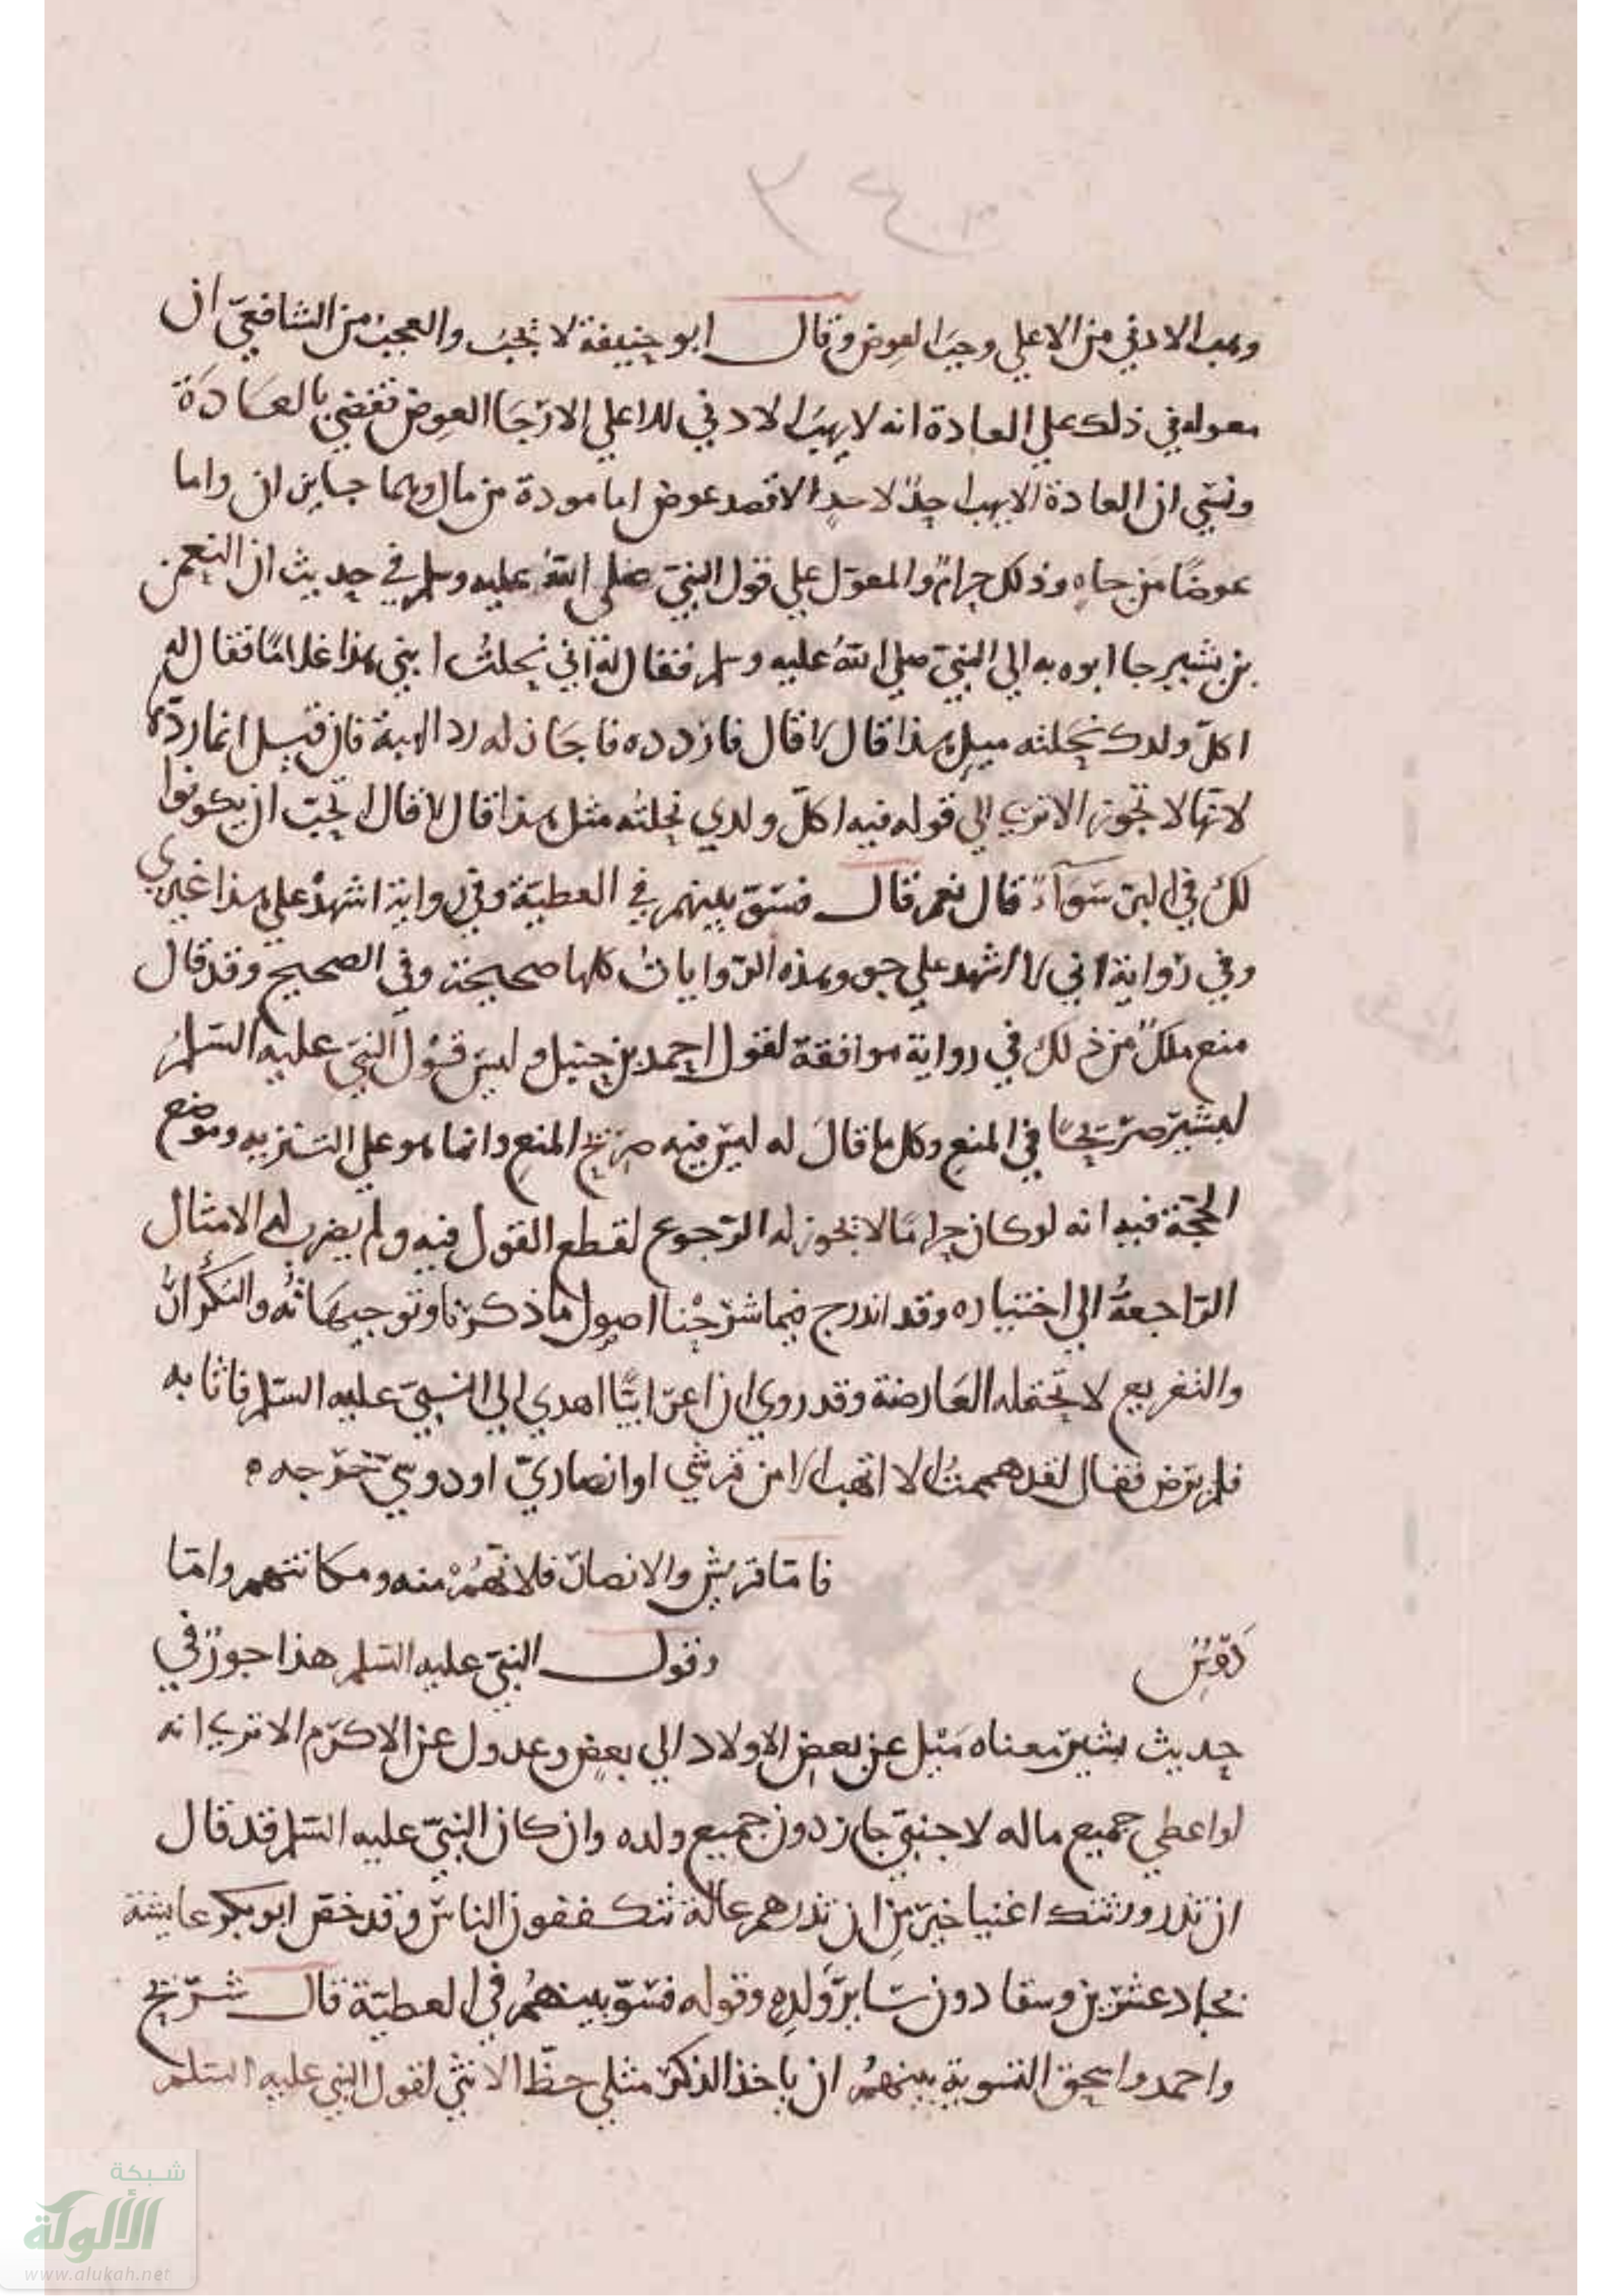 وهب الادني من الاعلي وجب العوض وقال ابو حنيفة لا يجب والعجب من الشافعي ان
معوله في ذلك علي العادة انه لا يهب الادني للاعلي الا رجا العوض نقضي بالعادة
ونسي ان العادة الا يهب احد لاحد الا قصد عوض اما مودة من مال وهما جايزان واما
عوضا من جاه وذلك حرام والمعول علي قول النبي صلى الله عليه وسلم في حديث ان النعمن
بن بشير جا ابوه به الي النبي صلي الله عليه وسلم فقال له اني نحلت ابني هذا غلاما فقال له
اكل ولدك نحلته مثل هذا قال لا قال فاردده فاجاز له رد الهبة فان قيل انما ردها
لانها لا تجوز الا تري الي قوله فيه اكل ولدي نحلته مثل هذا قال لا قال اتحب ان يكونوا
لك في البر سواء قال نعم قال فسو بينهم في العطية وفي رواية اشهد علي هذا غيري
وفي رواية اني لا اشهد علي جور وهذه الروايات كلها صحيحة وفي الصحيح وقد قال
منع ملك من ذلك في رواية موافقة لقول احمد بن حنبل وليس قول النبي عليه السلم
لبشير صريحا في المنع وكل ما قال له ليس فيه صريح المنع وانما هو علي التنزيه وموضع
الحجة فيه انه لو كان حراما لا يجوز له الرجوع لقطع القول فيه ولم يضرب له الامثال
الراجعة الي اختياره وقد اندرج فيما شرحنا اصول ما ذكرنا وتوجيهاته والتكرار
والتفريع لا تحتمله العارضة وقد روي ان اعرابيا اهدي الي النبي عليه السلم فاثابه
فلم يرض فقال لقد هممت الا اتهب الا من قرشي او انصاري او دوسي خرجه ه
فاما قريش والانصار فلانهم منه ومكانتهم واما
دوس وقول النبي عليه السلم هذا جور في
حديث بشير معناه ميل عن بعض الاولاد الي بعض وعدول عن الاكرم الا تري انه
لو اعطي جميع ماله لاجنبي جاز دون جميع ولده وان كان النبي عليه السلم قد قال
ان تذر ورثتك اغنيا خير من ان تذرهم عالة يتكففون الناس وقد خص ابو بكر عايشة
بجاد عشرين وسقا دون ساير ولده وقوله فسو بينهم في العطية قال شريح
واحمد واسحق التسوية بينهم ان ياخذ الذكر مثلي حظ الانثي لقول النبي عليه السلم
شبكة
الألوكة
www.alukah.net